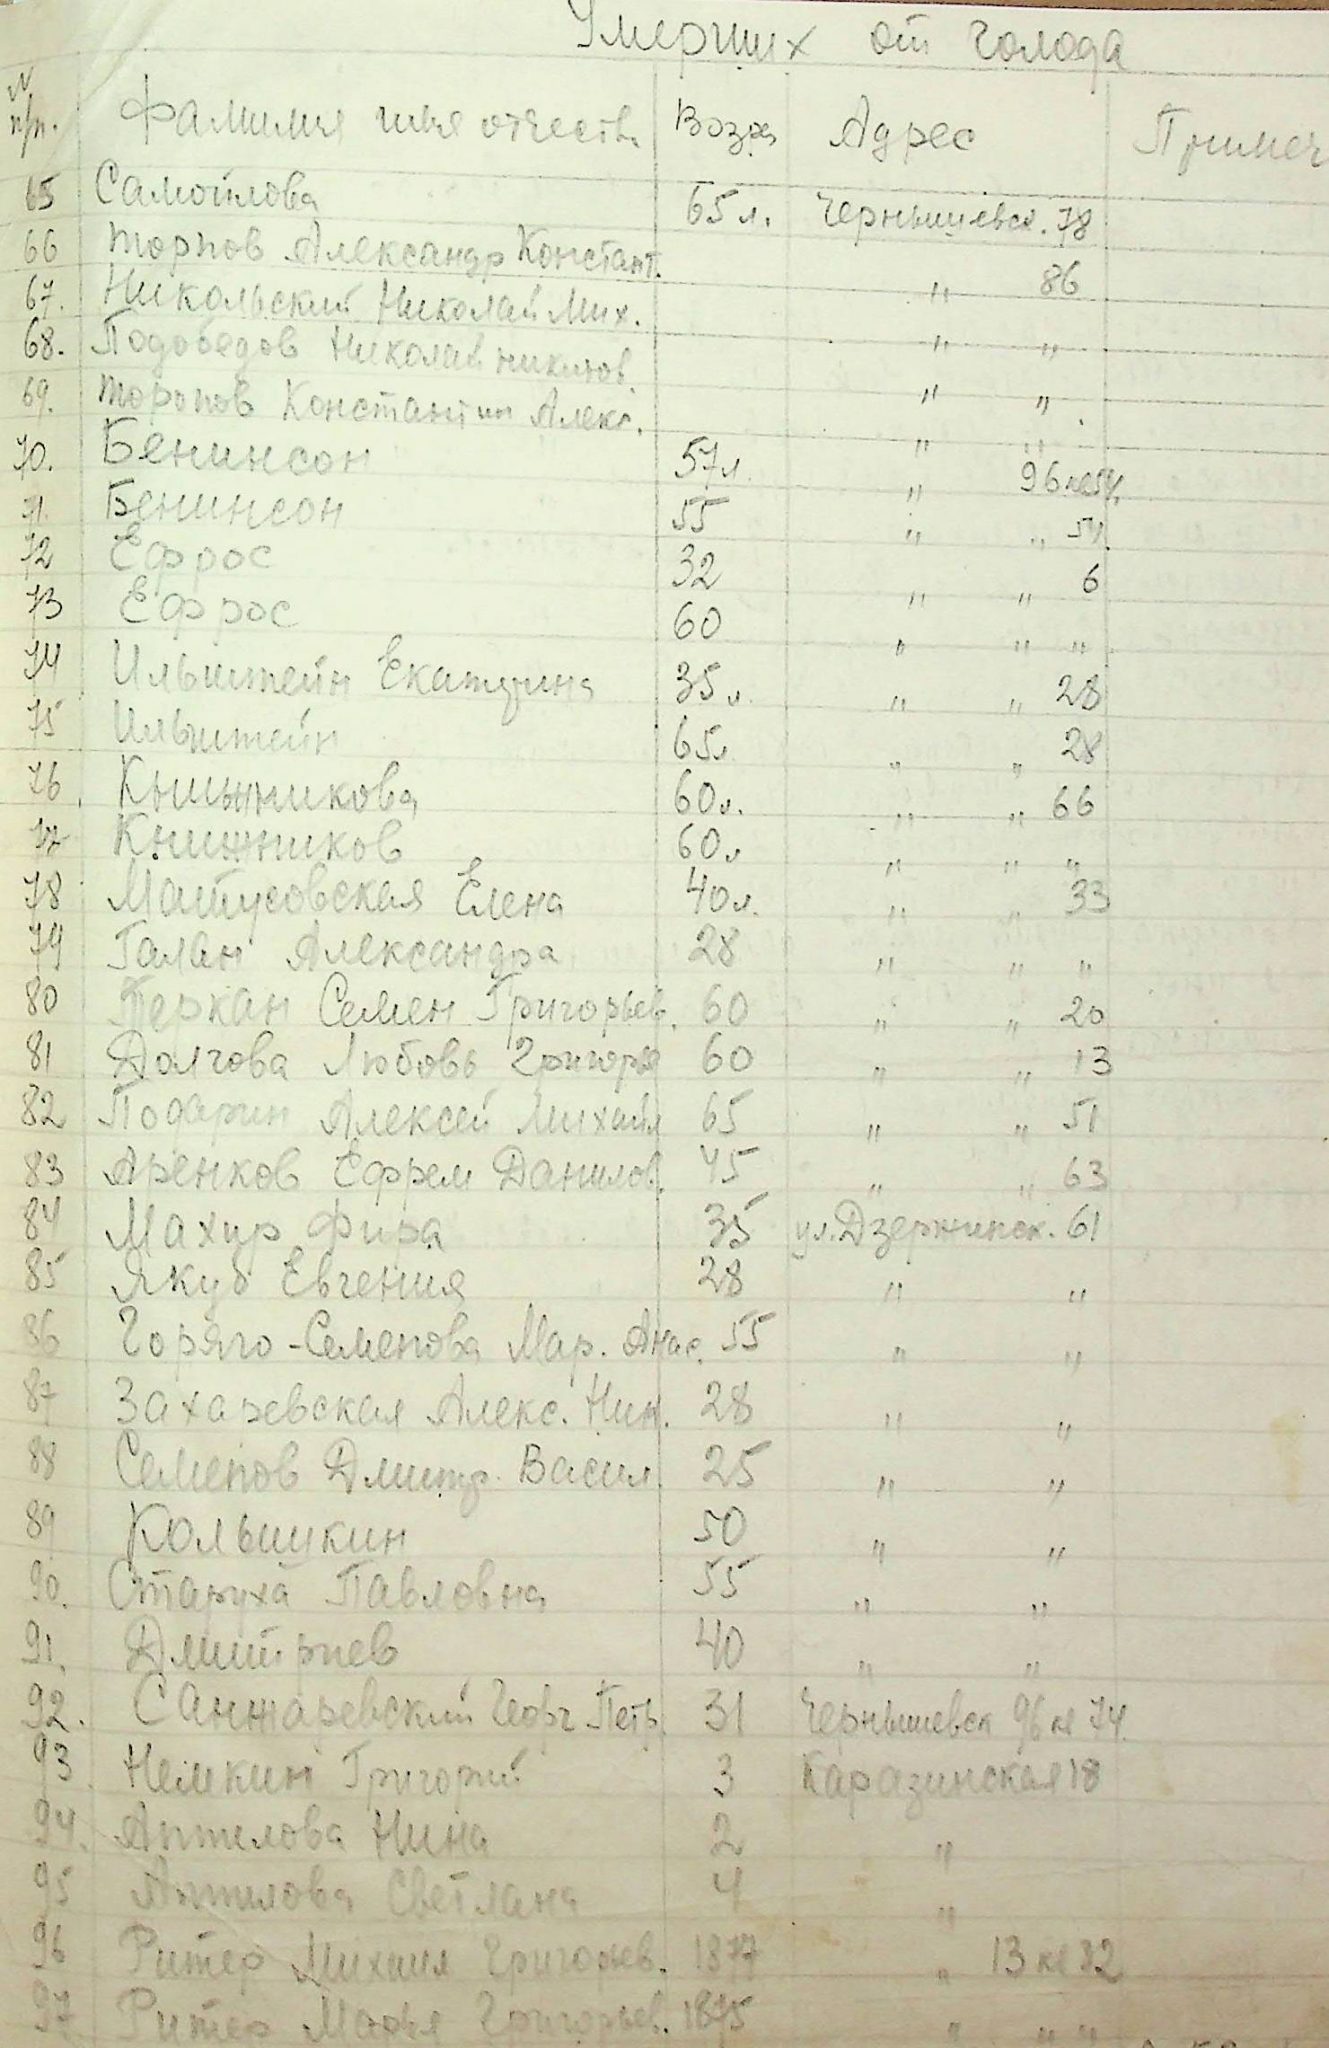 Умерших от голода
N п/п. Фамилия имя отчеств Возра Адрес Примеч
65 Самойлова 65 л. Чернышевск. 78
66 Торпов Александр Констант. " 86
67. Никольский Николай Мих. " "
68. Подобедов Николай Никитов. " "
69. Торопов Константин Алекс. " "
70. Бенинсон 57 л. " 96 кв 54.
71. Бенинсон 55 " " 54.
72 Ефрос 32 " " 6
73 Ефрос 60 " " "
74 Ильштейн Екатерина 35 л. " " 28
75 Ильштейн 65 л " " 28
76 Книжникова 60 л. " " 66
77 Книжников 60 л " " "
78 Матусовская Елена 40 л. " " 33
79 Галан Александра 28 " " "
80 Теркан Семен Григорьев. 60 " " 20
81 Долгова Любовь Григорье 60 " " 13
82 Подарин Алексей Михайл 65 " " 51
83 Аренков Ефрем Данилов. 45 " " 63
84 Махир Фира 35 ул. Дзержинск. 61
85 Якуб Евгения 28 " "
86 Горяго-Семенова Мар. Анас. 55 " "
87 Захаревская Алекс. Ник. 28 " "
88 Семенов Дмитр. Васил. 25 " "
89 Колышкин 50 " "
90. Старуха Павловна 55 " "
91. Дмитриев 40 " "
92. Санжаревский Георг. Петр. 31 Чернышевск 96 кв 74.
93 Немкин Григорий 3 Каразинская 18
94. Антилова Нина 2 "
95 Антилова Светлана 4 "
96 Ритер Михаил Григорьев. 1877 " 13 кв 32
97 Ритер Марья Григорьев. 1875 " " "